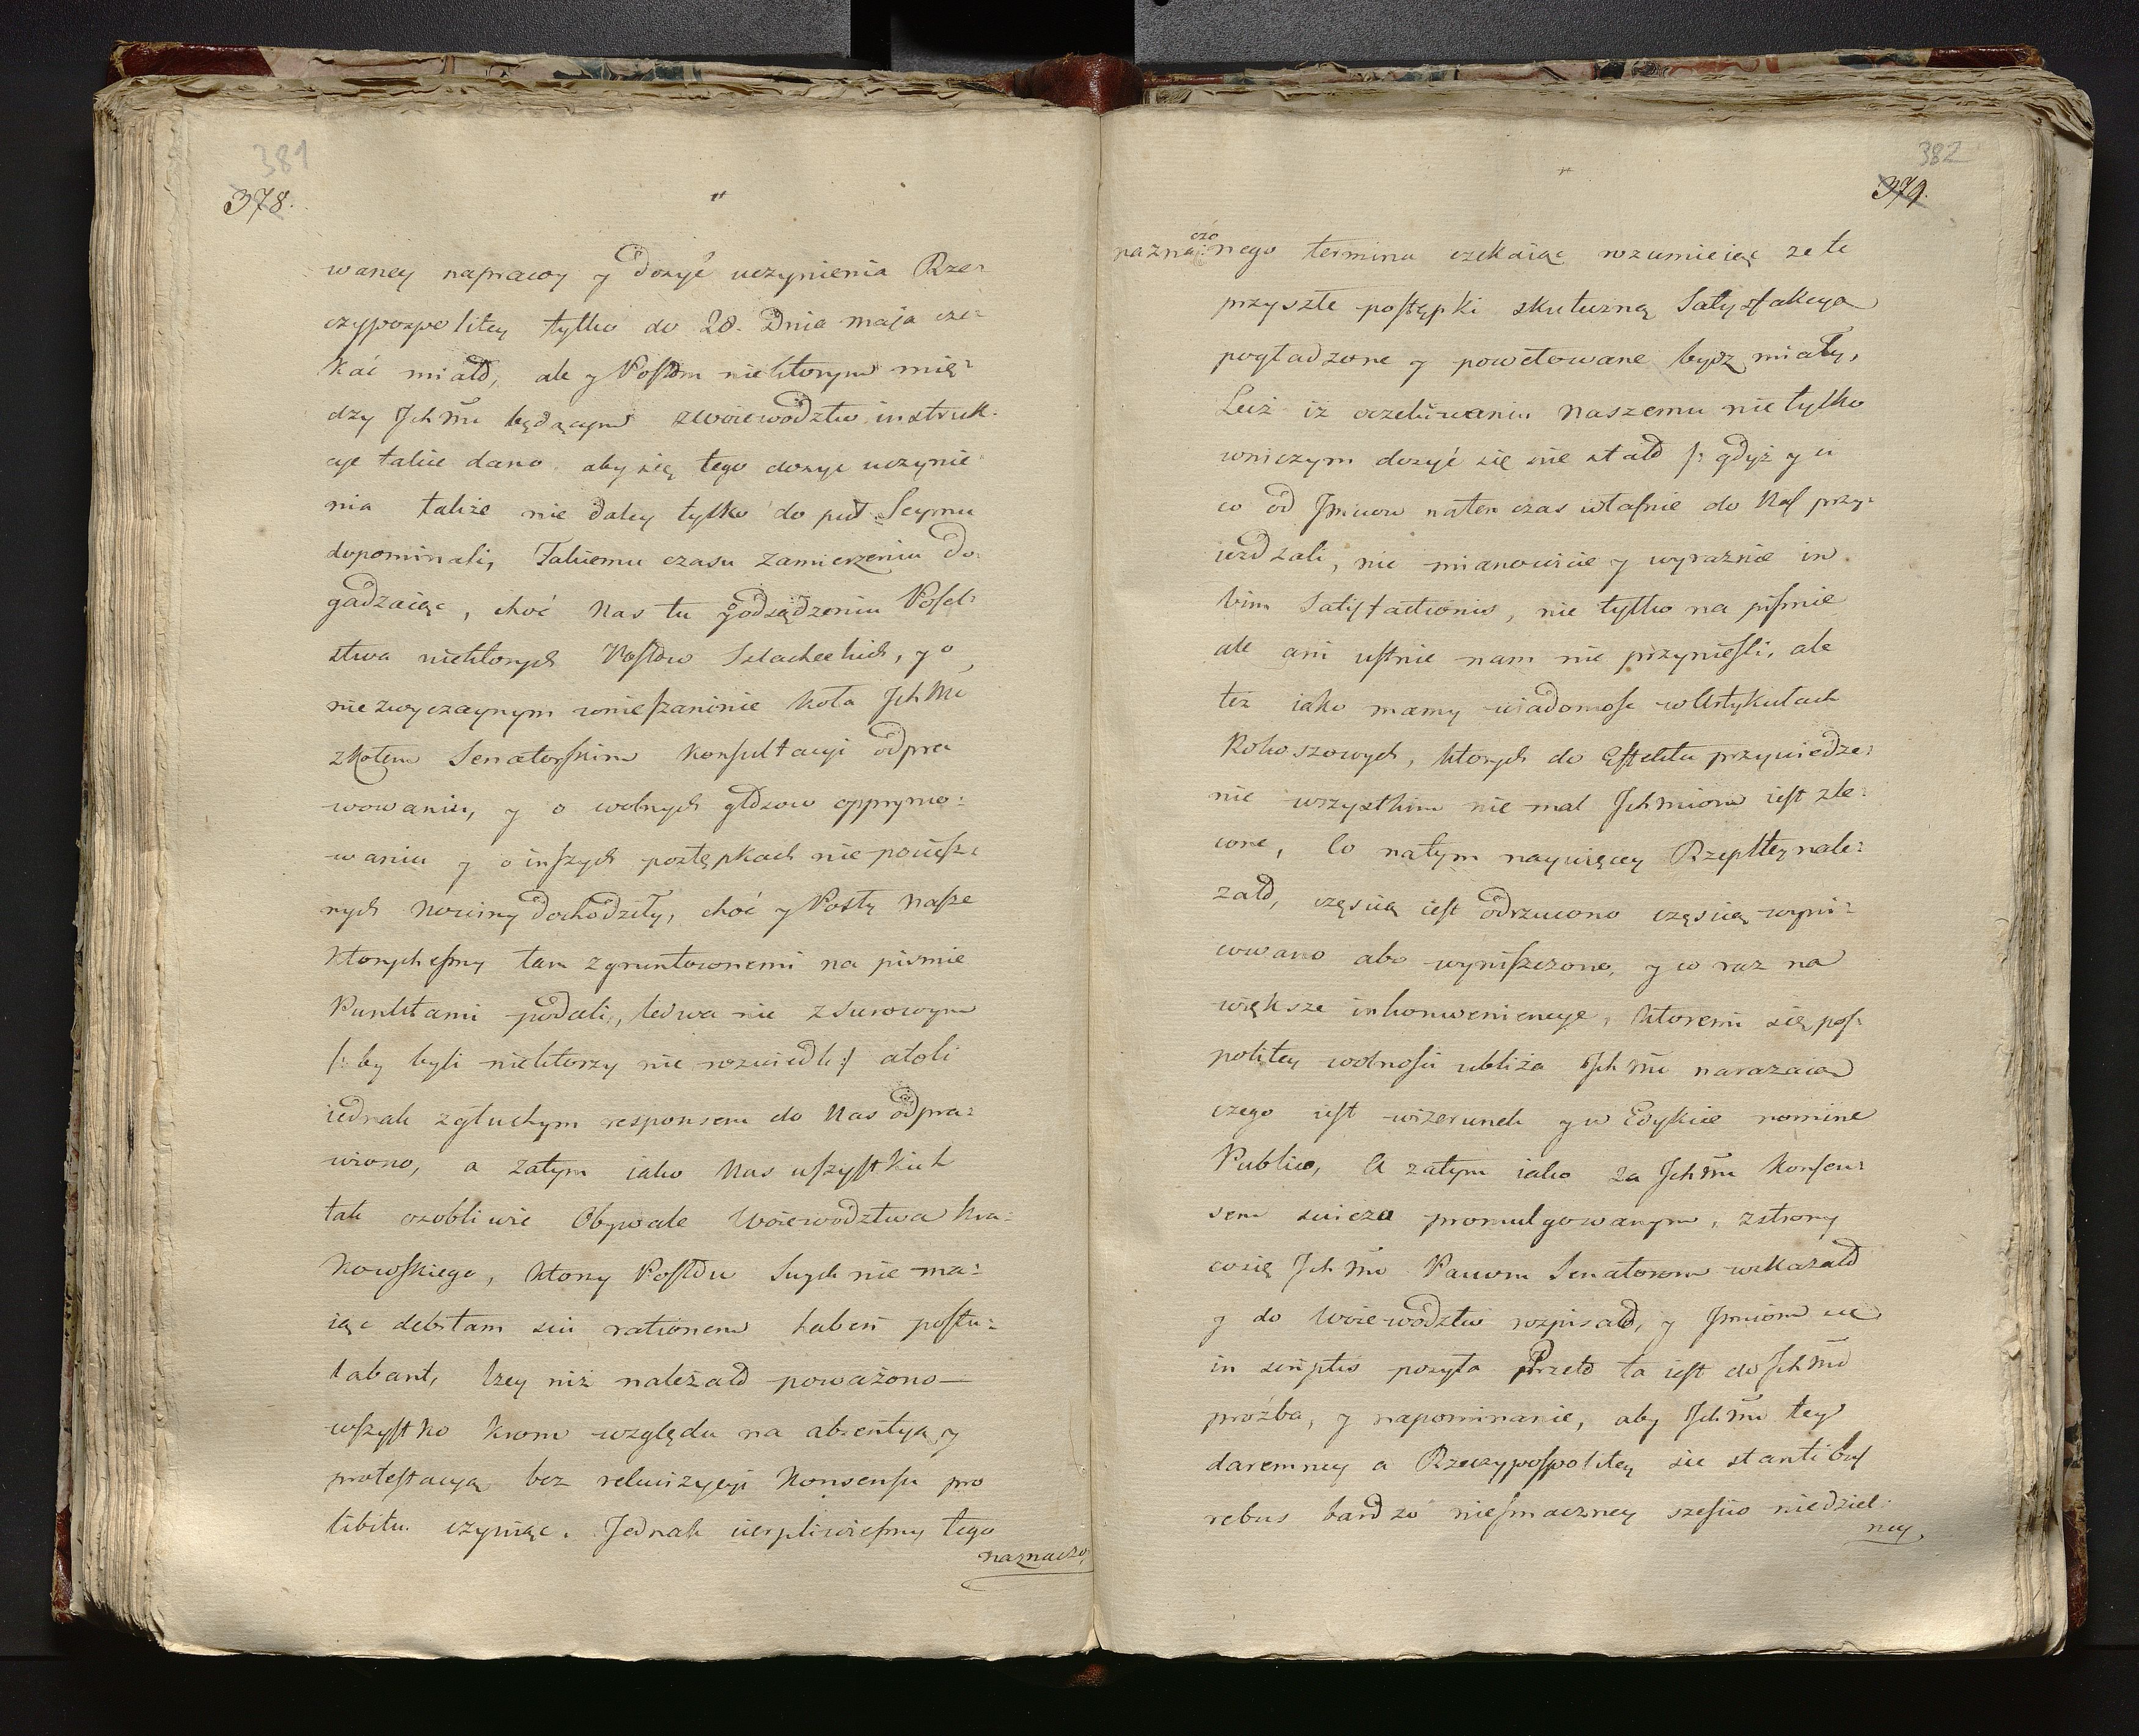 381
378.
waney naprawy y dosyć uczynienia Rze:
czypospolitey tylko do 28. Dnia maja cze:
kać miało, ale y Posłom niektorym mię:
dzy Ich Mć będącym z woiewodztw instruk.
cye takie dano aby się tego dosyc uczynie
nia także nie daley tylko do puł Seymu
dopominali, Takiemu czasu zamierzeniu do:
gadzaiąc, choć nas tu y o Posel:
stwa niektorych Posłow Szlacheckich, y o
niezwyczaynym wmieszaninie Koła Ich Mć
z Kołem Senatorskim Konsultacyi odpra
wowaniu, y o wolnych głosow opprymo:
waniu y o inszych postępkach nieociesz:
nych nowiny dochodziły, choć y Posły nasze
ktorychesmy tam z gruntownemi na pismie
Punktami podali, ledwa nie z surowym
/: by byli niektorzy nie rozwiedli :/ atoli
iednak z głuchym responsem do nas odpra:
wiono, a zatym iako nas wszystkich
tak osobliwie Obywate Woiewodztwa Kra:
kowskiego, ktory Posłow swych nie ma:
iąc debitam sui rationem haberi postu:
labant, lzey niż należało poważono —
wszystko krom względu na absentya y
protestacyą bez rekwizycyi Konsensu pro
libitu czyniąc. Jednak cierpliwiesmy tego
naznaczo,
382
379.
czo
naznaczonego terminu czekaiąc rozumieiąc ze te
przyszłe postępki skuteczną Satysfakcyą
pogładzone y powetowane bydz miały,
Lecz iz oczekiwaniu naszemu nie tylko
wniczym dosyć się nie stało /: gdyż y ci
co od Jmciow naten czas własnie do nas przy:
iezdzali, nic mianowicie y wyraznie in
vim Satisfactionis, nie tylko na pismie
ale ani ustnie nam nie przyniesli, ale
też iako mamy wiadomosc w Artykułach
Rokoszowych, ktorych do Effektu przywiedze:
nie wszystkim nie mal Ich Mciom iest zle:
cone, Co natym naywięcey Rzeptey nale:
zało, częscią iest odrzucono częscią wyni:
cowano abo wyniszczono, y co raz na
większe inkonweniencye, ktoremi się pos:
politey wolnosci ubliża Ich Mć narazaią
czego iest wizerunek y w Edykcie nomine
Publico, A zatym iako za Ich Mć Konsen:
sem swiezo promulgowanym, z strony
co się Ich Mć Panom Senatorom wskazało
y do Woiewodztw rozpisało, y Jmciom
in scriptis posyła Przeto ta iest do Ich Mć
proźba, y napominanie, aby Ich Mć tey
daremney a Rzeczypospolitey sic stantibus
rebus bardzo niesmaczney szescio niedziel:
ney,